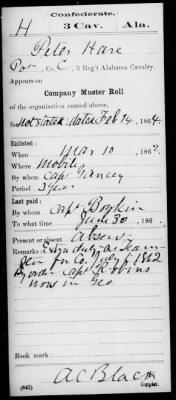 Confederate.
H 3 Cav. Ala.
Peter Hare
Pvt, Co. C, 3 Reg't Alabama Cavalry
Appears on
Company Muster Roll
of the organization named above,
for Not stated, dated Feb 14, 1864.
Enlisted:
When Mar 10, 186
Where Mobile
By whom Capt Yancey
Period 3 years
Last paid:
By whom Capt Boykin
To what time June 30, 186
Present or absent Absent
Remarks: Extra duty as Team
in Co. July 1 1862
By order Capt Robins
now in Geo
Book mark:
A C Black
(642) Copyist.